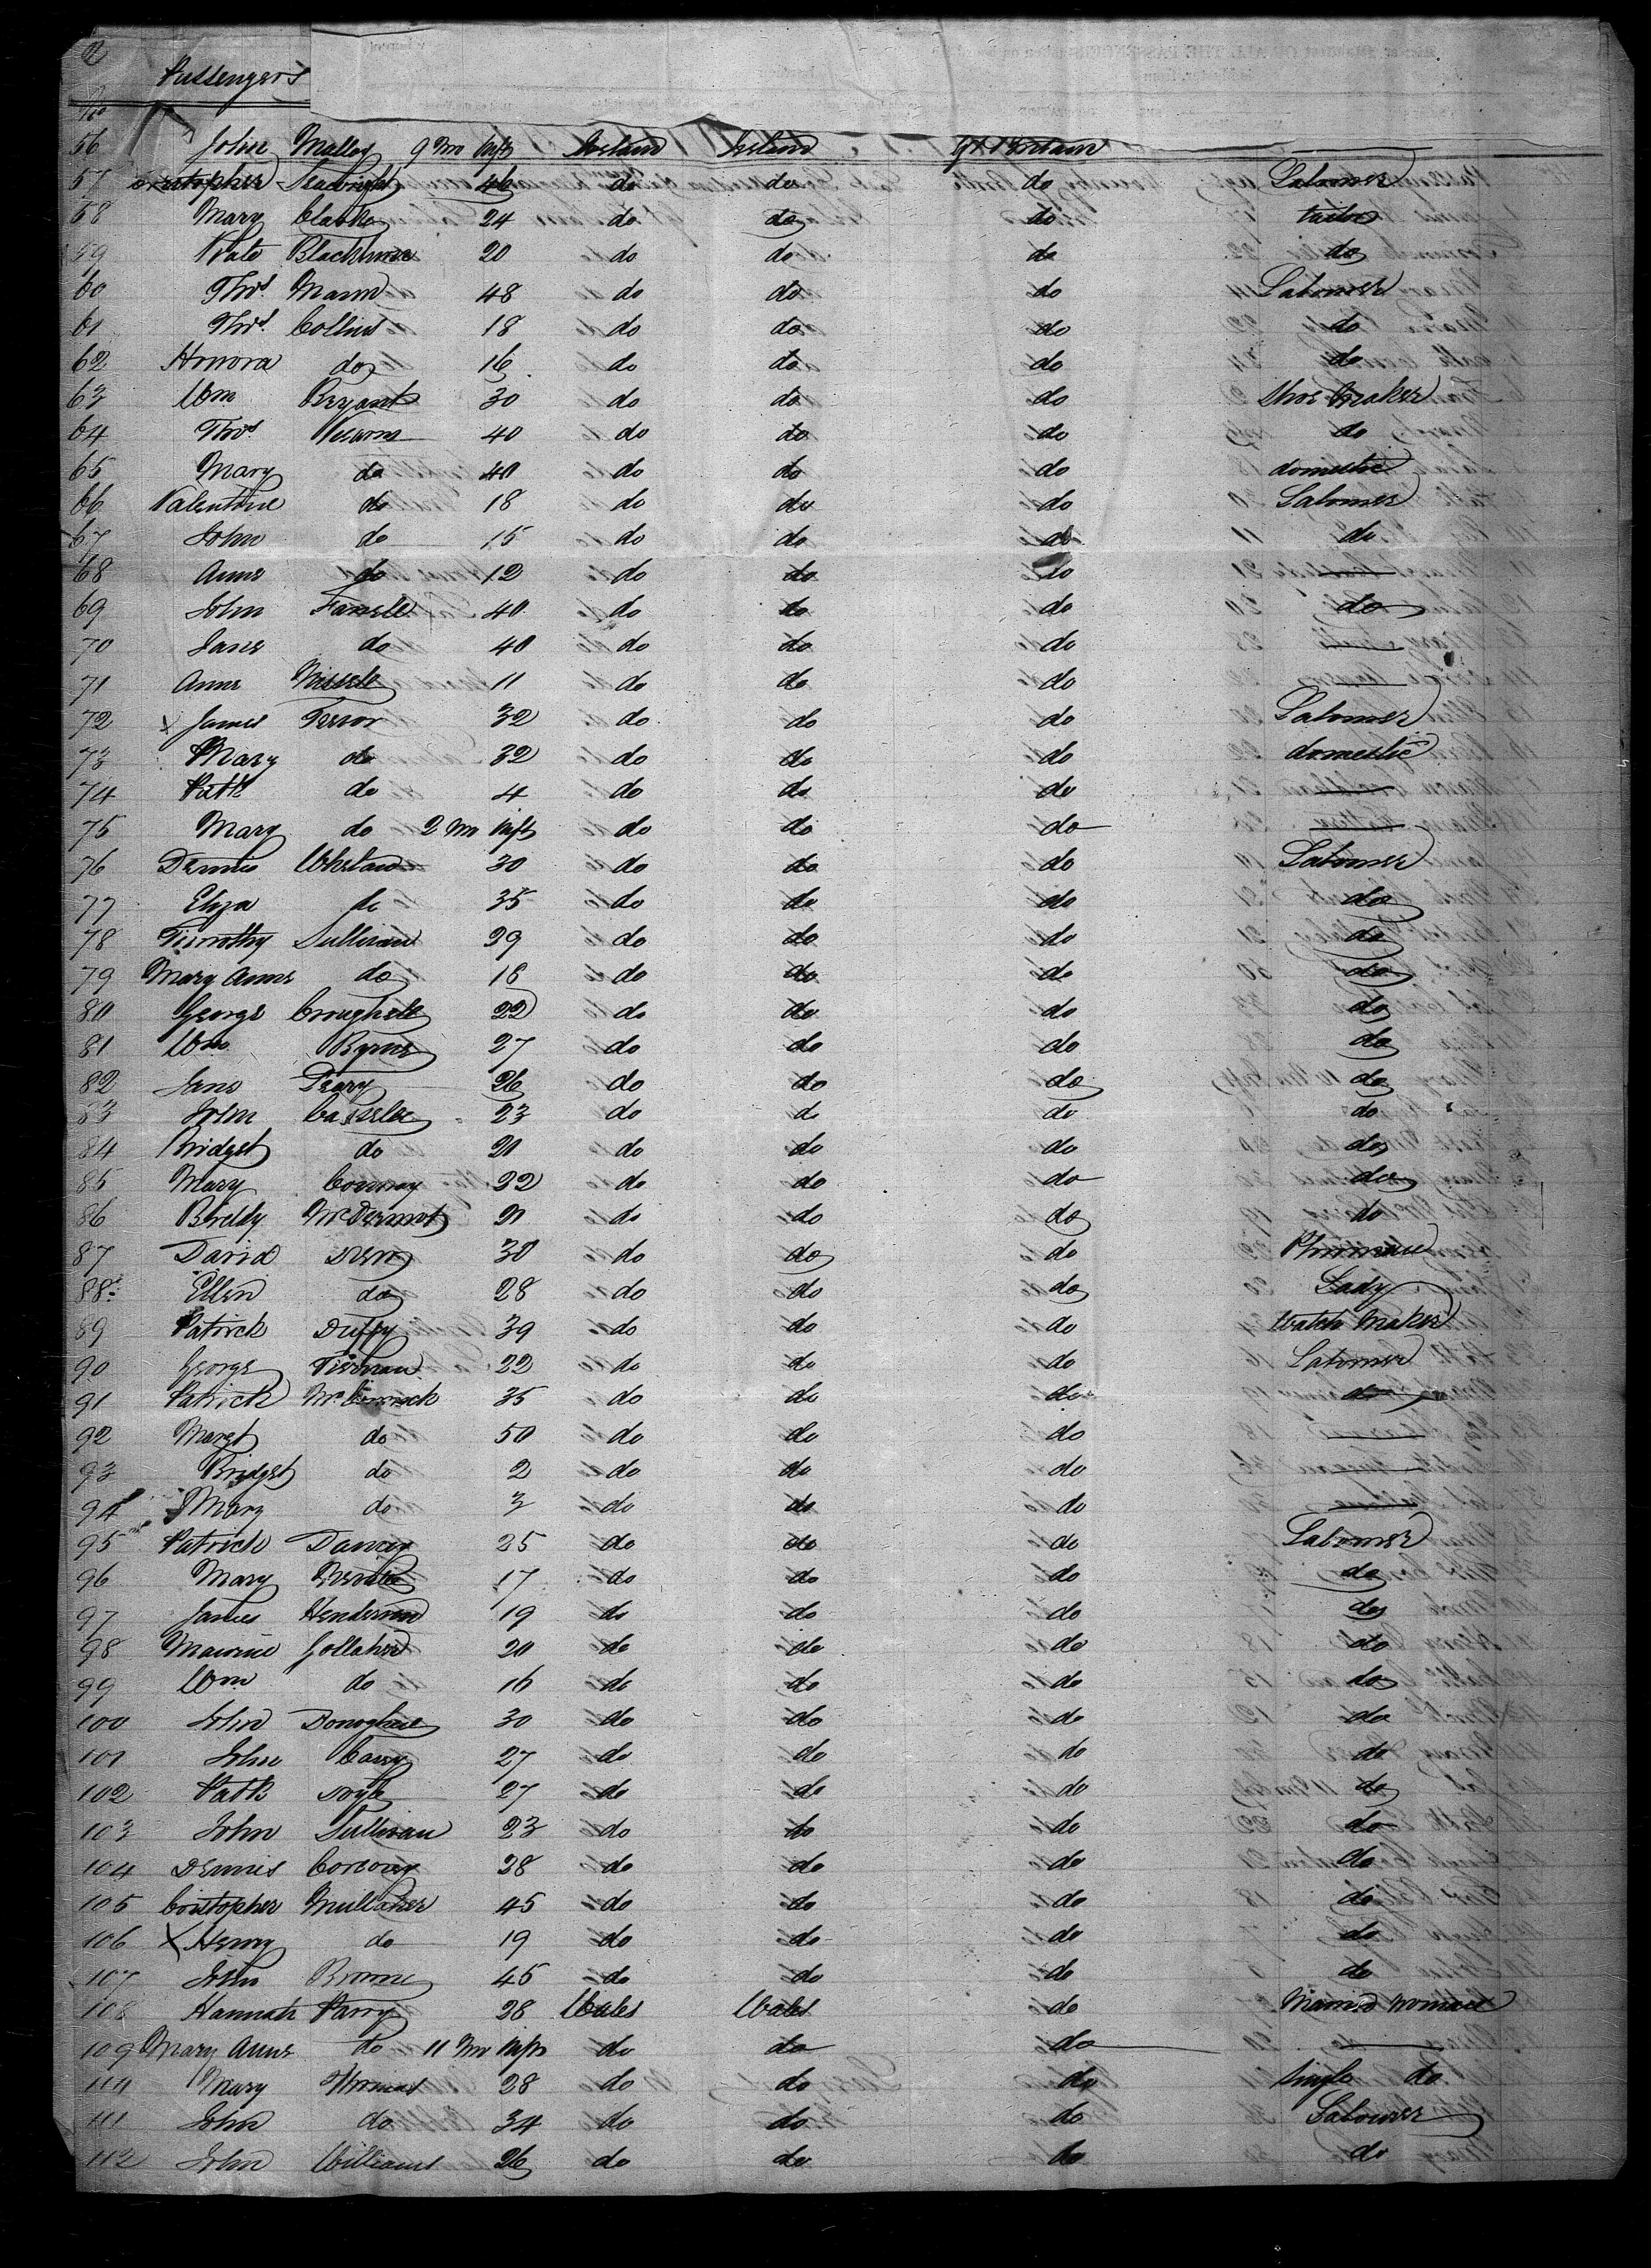 Passengers
No
56 John Malloy 9 Mo Inft Ireland Ireland Gt Britain
57 Seawright 46 do do do Labourer
58 Mary Clarke 24 do do do tailor
59 Kate Blackburne 20 do do do do
60 Thos. Mann 48 do do do Labourer
61 Thos. Collins 18 do do do do
62 Honora do 16 do do do do
63 Wm Bryant 30 do do do Shoe Maker
64 Thos. 40 do do do do
65 Mary do 40 do do do domestic
66 Valentine do 18 do do do Labourer
67 John do 15 do do do do
68 Anne do 12 do do do
69 John Farrell 40 do do do do
70 Jane do 40 do do do
71 Anne 11 do do do
72 X James Trevor 32 do do do Labourer
73 Mary do 32 do do do domestic
74 Patk do 4 do do do
75 Mary do 2 Mo Inft do do do
76 Dennis Whelan 30 do do do Labourer
77 Eliza do 35 do do do do
78 Timothy Sullivan 39 do do do do
79 Mary Anne do 18 do do do do
80 George 22 do do do do
81 Wm Byrne 27 do do do do
82 Jane 26 do do do do
83 John 23 do do do do
84 Bridget do 20 do do do do
85 Mary Conway 32 do do do do
86 Biddy McDermot 21 do do do do
87 David 30 do do do
88 Ellen do 28 do do do Lady
89 Patrick Duffy 39 do do do Watch Maker
90 George Tiernan 22 do do do Labourer
91 Patrick McCormick 35 do do do do
92 Margt do 50 do do do
93 Bridget do 2 do do do
94 Mary do 3 do do do
95 Patrick 25 do do do Labourer
96 Mary 17 do do do do
97 James Henderson 19 do do do do
98 Maurice Gollaher 20 do do do do
99 Wm do 16 do do do do
100 John Donoghue 30 do do do do
101 John Carry 27 do do do do
102 Patk Doyle 27 do do do do
103 John Sullivan 23 do do do do
104 Dennis Corcoran 28 do do do do
105 Cristopher Mullaher 45 do do do do
106 X Henry do 19 do do do do
107 John Browne 45 do do do do
108 Hannah Parry 28 Wales Wales do Married woman
109 Mary Anne do 11 Mo Inft do do do
110 Mary Thomas 28 do do do single do
111 John do 34 do do do Labourer
112 John Williams 26 do do do do